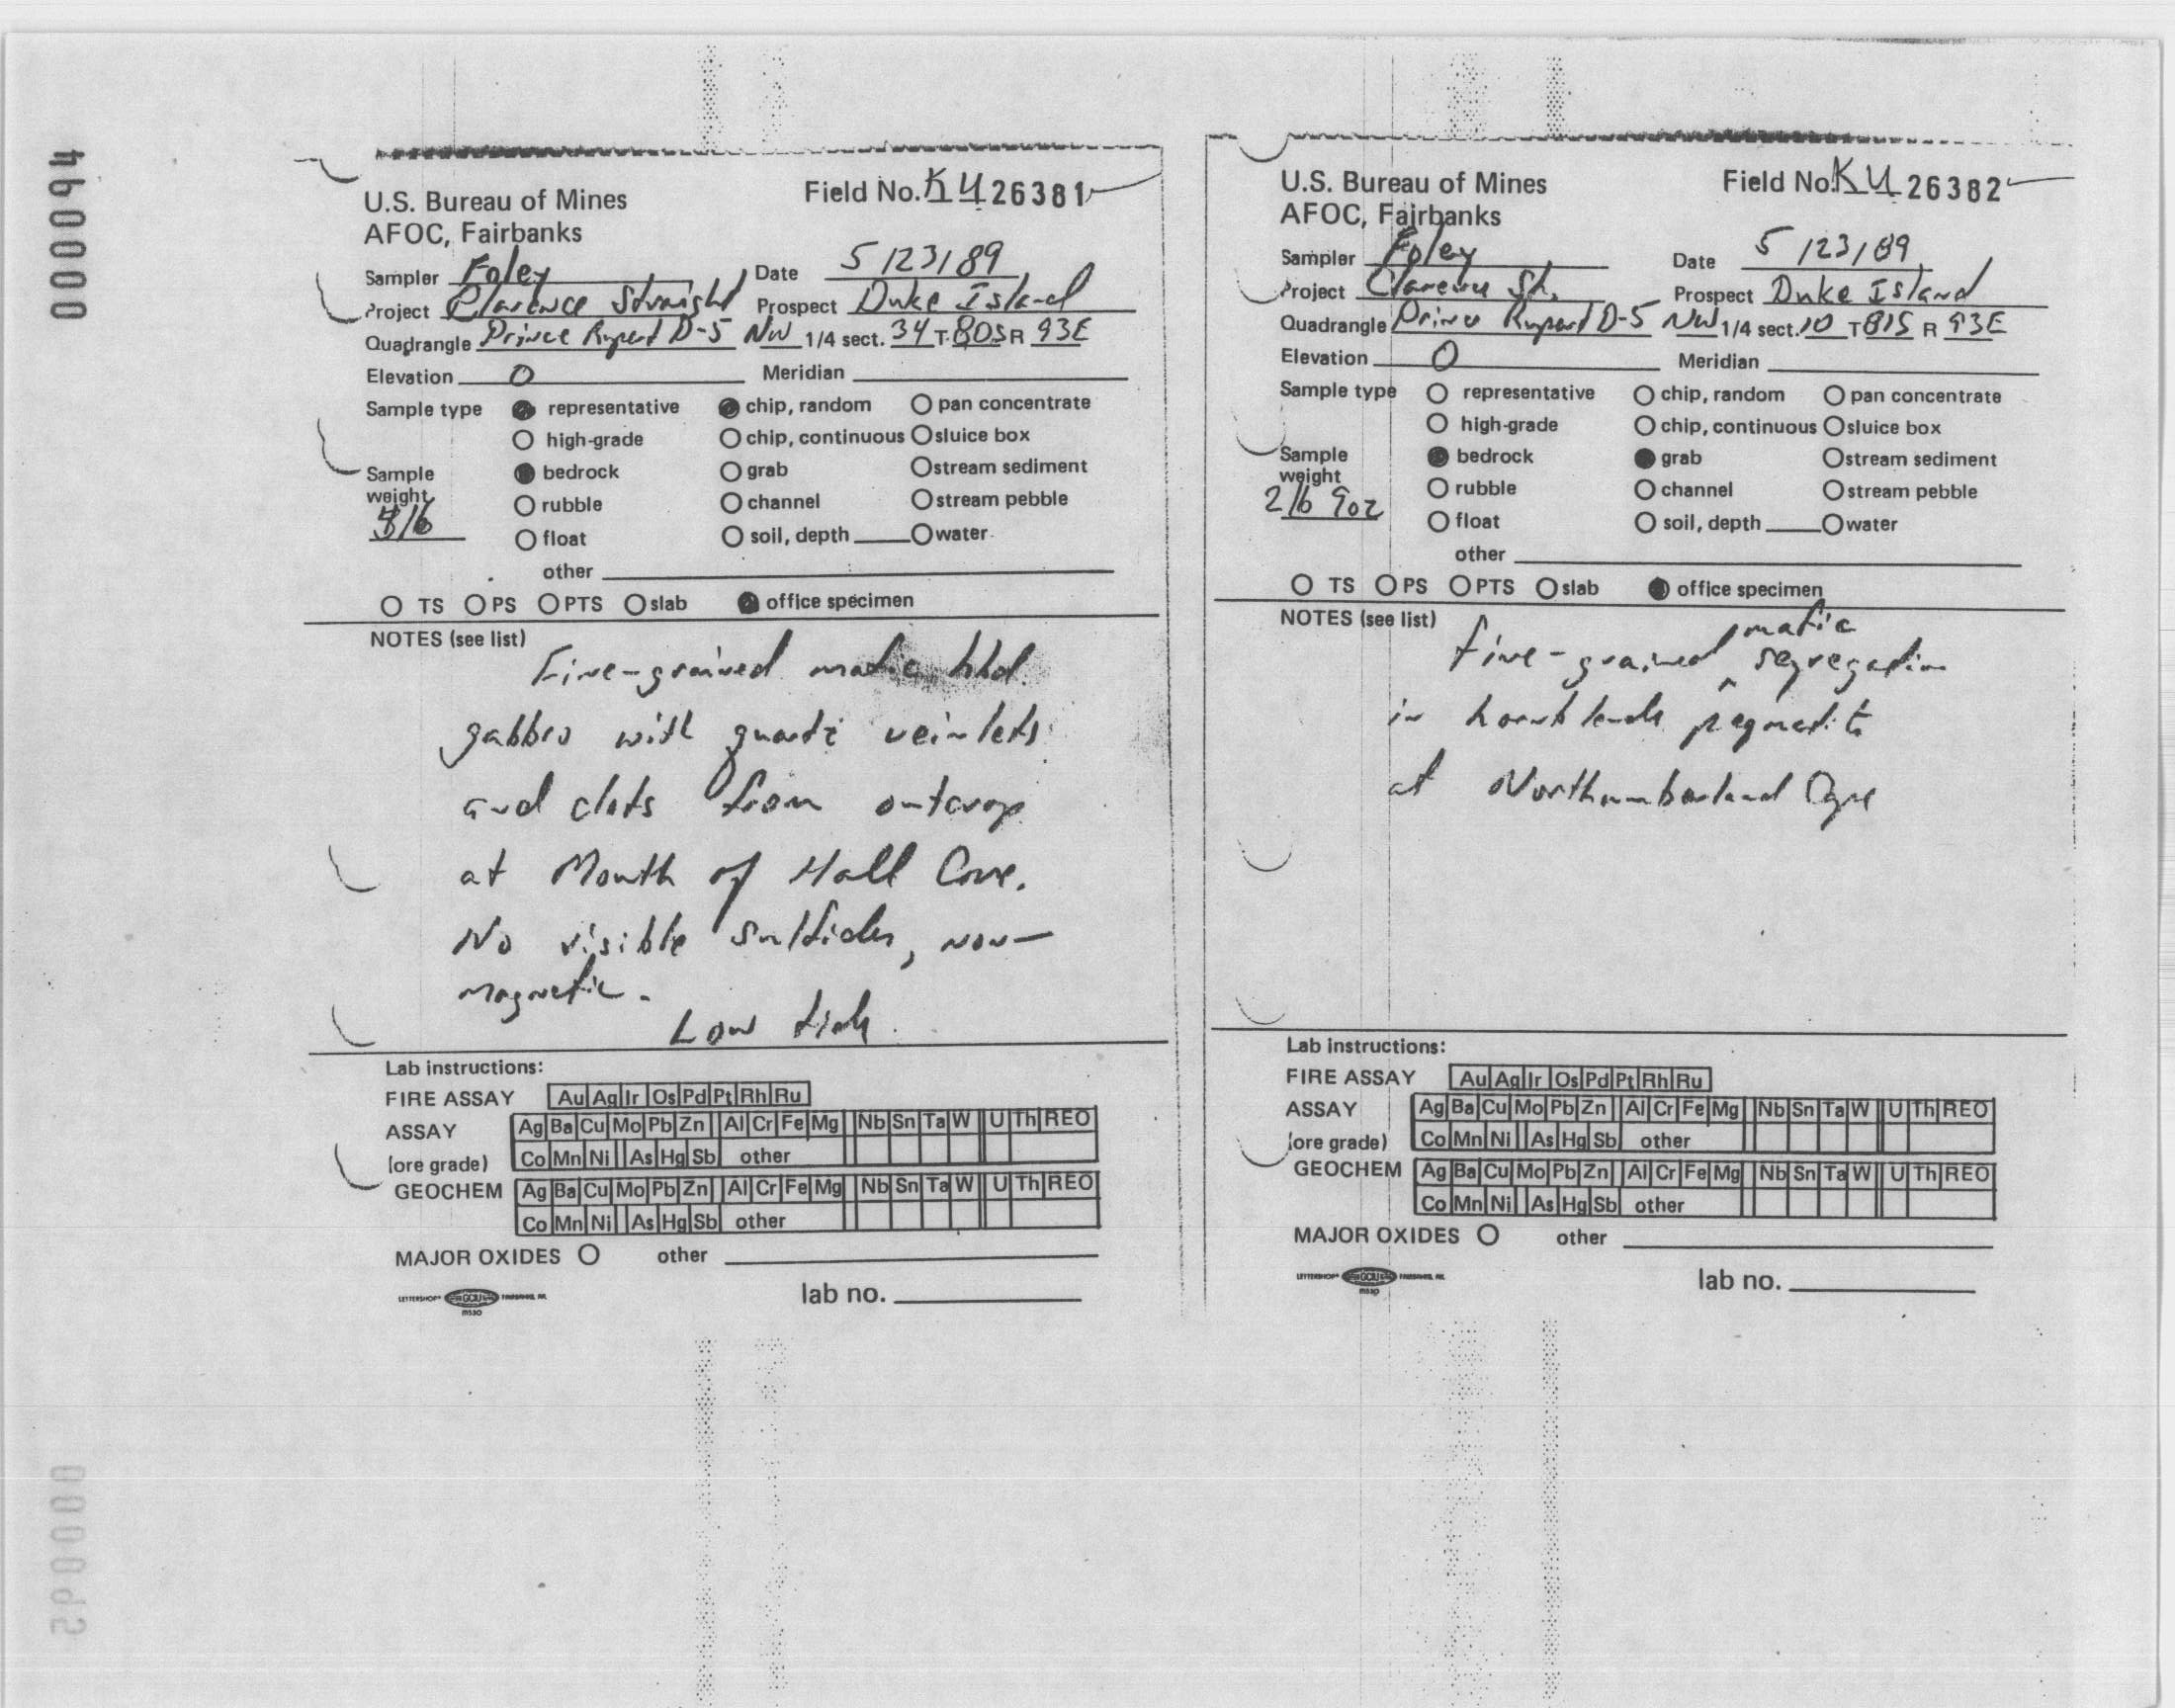 000094
U.S. Bureau of Mines
AFOC, Fairbanks
Field No. KU 26381
Sampler Foley
Date 5/23/89
Project Clarence Straight
Prospect Duke Island
Quadrangle Prince Rupert D-5 NW 1/4 sect. 34 T 80S R 93E
Elevation 0 Meridian
Sample type representative chip, random pan concentrate
high-grade chip, continuous sluice box
Sample weight
bedrock grab stream sediment
rubble channel stream pebble
float soil, depth water
other
TS PS PTS slab office specimen
NOTES (see list)
Fine-grained mafic hbd.
gabbro with quartz veinlets
and clots from outcrop
at Mouth of Hall Cove.
No visible sulfides, non-
magnetic.
Low tide
Lab instructions:
FIRE ASSAY Au Ag Ir Os Pd Pt Rh Ru
ASSAY Ag Ba Cu Mo Pb Zn Al Cr Fe Mg Nb Sn Ta W U Th REO
(ore grade) Co Mn Ni As Hg Sb other
GEOCHEM Ag Ba Cu Mo Pb Zn Al Cr Fe Mg Nb Sn Ta W U Th REO
Co Mn Ni As Hg Sb other
MAJOR OXIDES other
lab no.
U.S. Bureau of Mines
AFOC, Fairbanks
Field No. KU 26382
Sampler Foley
Date 5/23/89
Project Clarence St.
Prospect Duke Island
Quadrangle Prince Rupert D-5 NW 1/4 sect. 10 T 81S R 93E
Elevation 0 Meridian
Sample type representative chip, random pan concentrate
high-grade chip, continuous sluice box
Sample weight 2 lb 9oz
bedrock grab stream sediment
rubble channel stream pebble
float soil, depth water
other
TS PS PTS slab office specimen
NOTES (see list)
fine-grained mafic segregation
in hornblende pegmatite
at Northumberland
Lab instructions:
FIRE ASSAY Au Ag Ir Os Pd Pt Rh Ru
ASSAY Ag Ba Cu Mo Pb Zn Al Cr Fe Mg Nb Sn Ta W U Th REO
(ore grade) Co Mn Ni As Hg Sb other
GEOCHEM Ag Ba Cu Mo Pb Zn Al Cr Fe Mg Nb Sn Ta W U Th REO
Co Mn Ni As Hg Sb other
MAJOR OXIDES other
lab no.